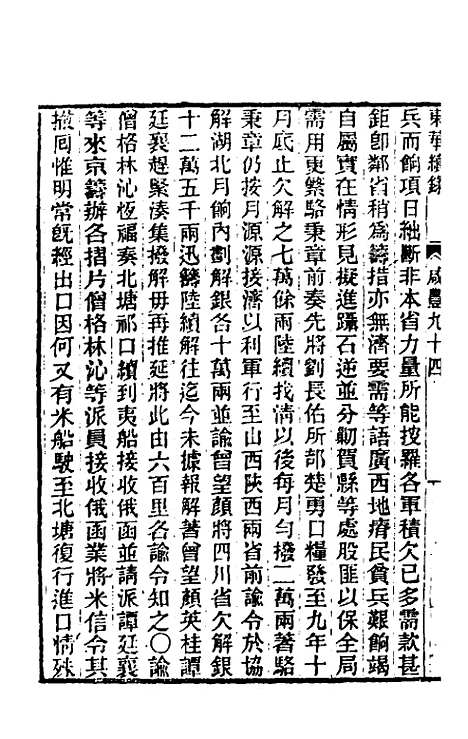 東華續錄 咸豐九十四
兵而餉項日絀斷非本省力量所能按羅各軍積欠已多需款甚
鉅卽鄰省稍爲籌措亦無濟要需等語廣西地瘠民貧兵艱餉竭
自屬實在情形見擬進躡石逆並分勦賀縣等處股匪以保全局
需用更繁駱秉章前奏先將劉長佑所部楚勇口糧發至九年十
月底止欠解之七萬餘兩陸續找情以後每月勻撥二萬兩著駱
秉章仍按月源源接濟以利軍行至山西陝西兩省前諭令於協
解湖北月餉內劃解銀各十萬兩並諭曾望顏將四川省欠解銀
十二萬五千兩迅籌陸續解往迄今未據報解著曾望顏英桂譚
廷襄趕緊湊集撥解毋再推延將此由六百里各諭令知之〇諭
僧格林沁恆福奏北塘祁口續到夷船接收俄函並請派譚廷襄
等來京籌辦各摺片僧格林沁等派員接收俄函業將米信令其
撤回惟明常旣經出口因何又有米船駛至北塘復行進口情殊